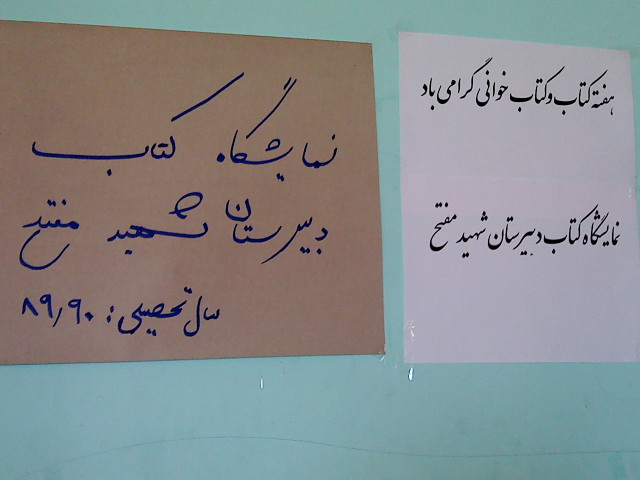 نمایشگاه کتاب
دبیرستان شهید مفتح
سال تحصیلی: ۸۹٫۹۰
هفته کتاب و کتاب خوانی گرامی باد
نمایشگاه کتاب دبیرستان شهید مفتح